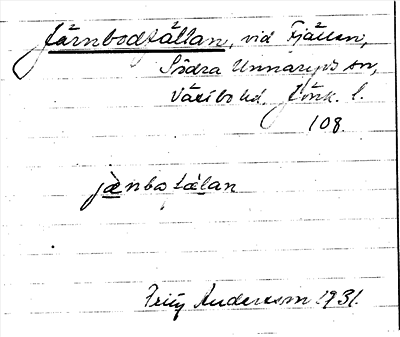 Järnbodtällan, vid Fjällen,
Södra Unnaryds sn,
Västbo hd. Jönk. l.
108.
jænbotælan
Fritz Anderson 1931.